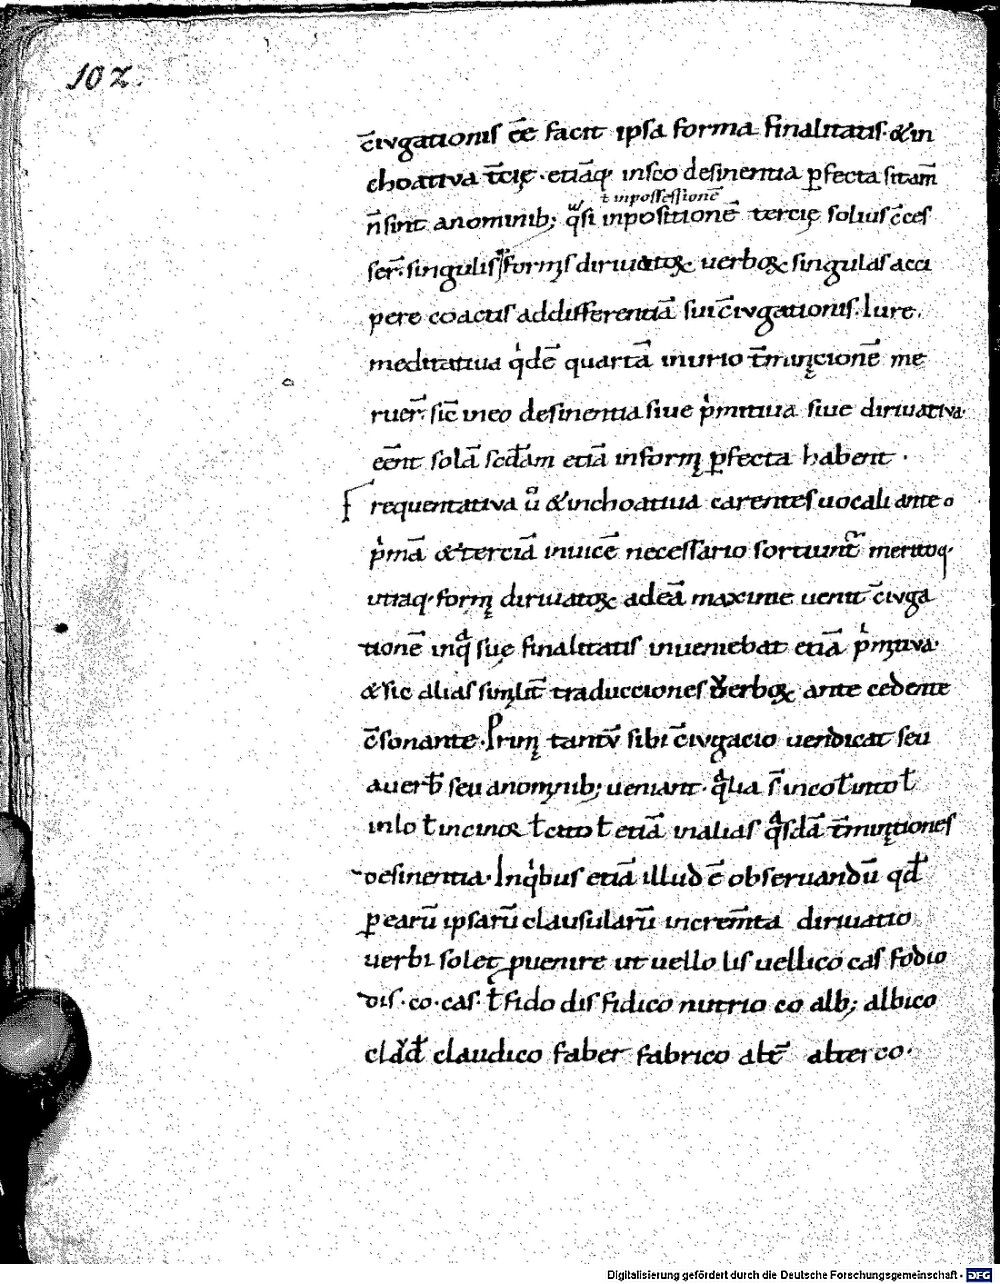 102.
c̄iugationis ēē facit ipsa forma finalitatis. &in
choatiua t̄cię. etiāq; insco desinentia ꝑfecta sitam̄
ł inpossessionē
n̄ sint anominib; q̊si inpositionē tercię solius c̄ces
ser̄. singulis formis diriuatoꝝ uerboꝝ singulas acci
pere coactus addifferentiā sui c̄iugationis. lure.
meditatiua q̍dē quartā inurio t̄minęcionē me
ruer̄. sic̄ ineo desinentia siue p̍mitiua siue diriuatiua
eēnt solā sed̄am etiā informę ꝑfecta habent.
frequentatiua ū &inchoatiua carentes uocali ante o
p̍mā & terciā inuicē necessario sortiunt̄ meritoq;
utraq; formę diriuatoꝝ adeā maxime uenit c̄iuga
tionē inqͣ suę finalitatis inueniebat etiā p̍mitiua.
& sic alias similit̄ traducciones uerboꝝ ante cedente
c̄sonante. Primę tantū sibi c̄iugacio uendicat seu
auerb̄ seu anominib; ueniant. qͣlia s̄ incoł intoł
inlo ł incinoꝛ ł catto ł etiā inalias qͣsdā t̄minętiones
desinentia. Inq̍bus etiā illud ē obseruandū qd̄
ꝑ earū ipsarū clausularū increm̄ta diriuatio
uerbi solet puenire ut uello lis uellico cas fodio
dis. co. cas. ł fido dis fidico nutrio co alb; albico
clad̄ claudico faber fabrico alt̄ alterco.
Digitalisierung gefördert durch die Deutsche Forschungsgemeinschaft - DFG